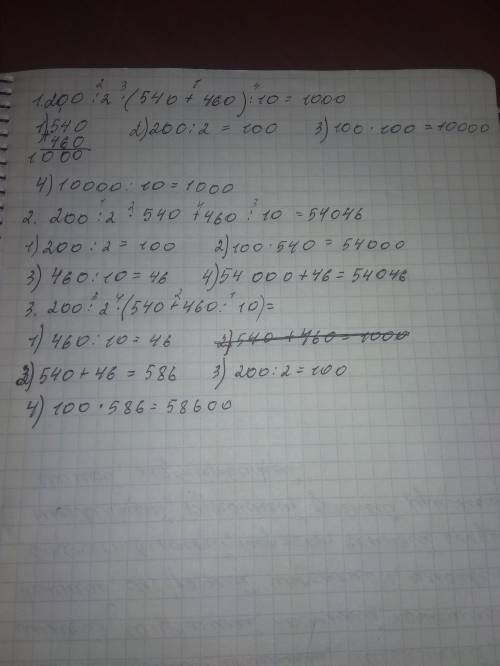 1. 200 : 2 · (540 + 460) : 10 = 1000
1) 540 2) 200 : 2 = 100 3) 100 · 100 = 10000
+ 460
1000
4) 10000 : 10 = 1000
2. 200 : 2 · 540 + 460 : 10 = 54046
1) 200 : 2 = 100 2) 100 · 540 = 54000
3) 460 : 10 = 46 4) 54 000 + 46 = 54046
3. 200 : 2 · (540 + 460 : 10) =
1) 460 : 10 = 46 2) 540 + 460 = 1000
2) 540 + 46 = 586 3) 200 : 2 = 100
4) 100 · 586 = 58600